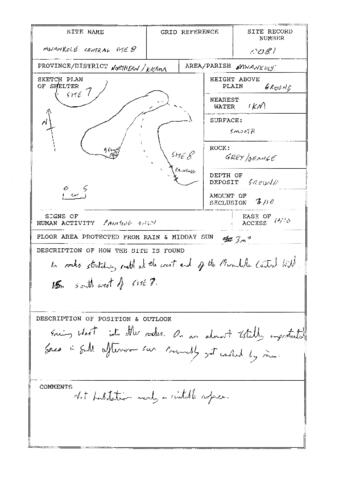 SITE NAME
GRID REFERENCE
SITE RECORD NUMBER
MWANKOLE CENTRAL SITE 8
PROVINCE/DISTRICT NORTHERN/KASAMA
AREA/PARISH MWANKOLE
SKETCH PLAN OF SHELTER
SITE 7
N
SITE 8
HEIGHT ABOVE PLAIN GROUND
NEAREST WATER 1KM
SURFACE:
SMOOTH
ROCK:
GREY/ORANGE
DEPTH OF DEPOSIT GROUND
AMOUNT OF SECLUSION /10
SIGNS OF HUMAN ACTIVITY PAINTING ONLY
EASE OF ACCESS 10/10
FLOOR AREA PROTECTED FROM RAIN & MIDDAY SUN 3m²
DESCRIPTION OF HOW THE SITE IS FOUND
In rocks stretching north at the west end of the Mwankole Central Hill
south west of SITE 7.
DESCRIPTION OF POSITION & OUTLOOK
Facing West into other rocks. On an almost totally unprotected
face in full afternoon sun
COMMENTS
Not habitation merely a suitable surface.